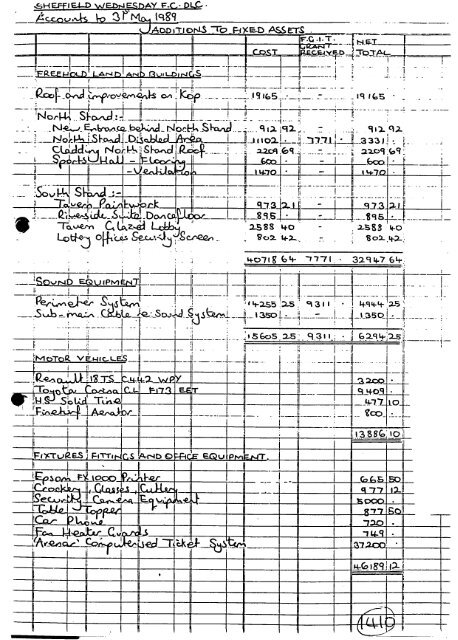 SHEFFIELD WEDNESDAY F.C. DLC.
Accounts to 31st May 1989
ADDITIONS TO FIXED ASSETS
COST F.G.I.T. GRANT RECEIVED NET TOTAL
FREEHOLD LAND AND BUILDINGS
Roof and improvements on Kop 19165 . - 19165 .
North Stand:-
New Entrance behind North Stand 912 92 - 912 92
North Stand Disabled Area 11102 . 7771 . 3331 .
Cladding North Stand Roof 2209 69 - 2209 69
Sports Hall - Flooring 600 . - 600 .
- Ventilation 1470 . - 1470 .
South Stand:-
Tavern Paintwork 973 21 - 973 21
Riverside Suite Dancefloor 895 . - 895 .
Tavern Glazed Lobby 2588 40 - 2588 40
Lottery Offices Security Screen 802 42 - 802 42
40718 64 7771 . 32947 64
SOUND EQUIPMENT
Perimeter System 14255 25 9311 . 4944 25
Sub-main Cable re Sound System 1350 . - 1350 .
15605 25 9311 . 6294 25
MOTOR VEHICLES
Renault 18TS C442 WPY 3200 .
Toyota Carina GL F173 EET 9409 .
H8 Solid Tine 477 10
Aerator 800 .
13886 10
FIXTURES, FITTINGS AND OFFICE EQUIPMENT.
Epson FX1000 Printer 665 50
Crockery, Glasses, Cutlery 977 12
Security Camera Equipment 5000 .
Table Topper 877 50
Car Phone 720 .
Fan Heater Guards 749 .
'Arena' Computerised Ticket System 37200 .
46189 12
1410